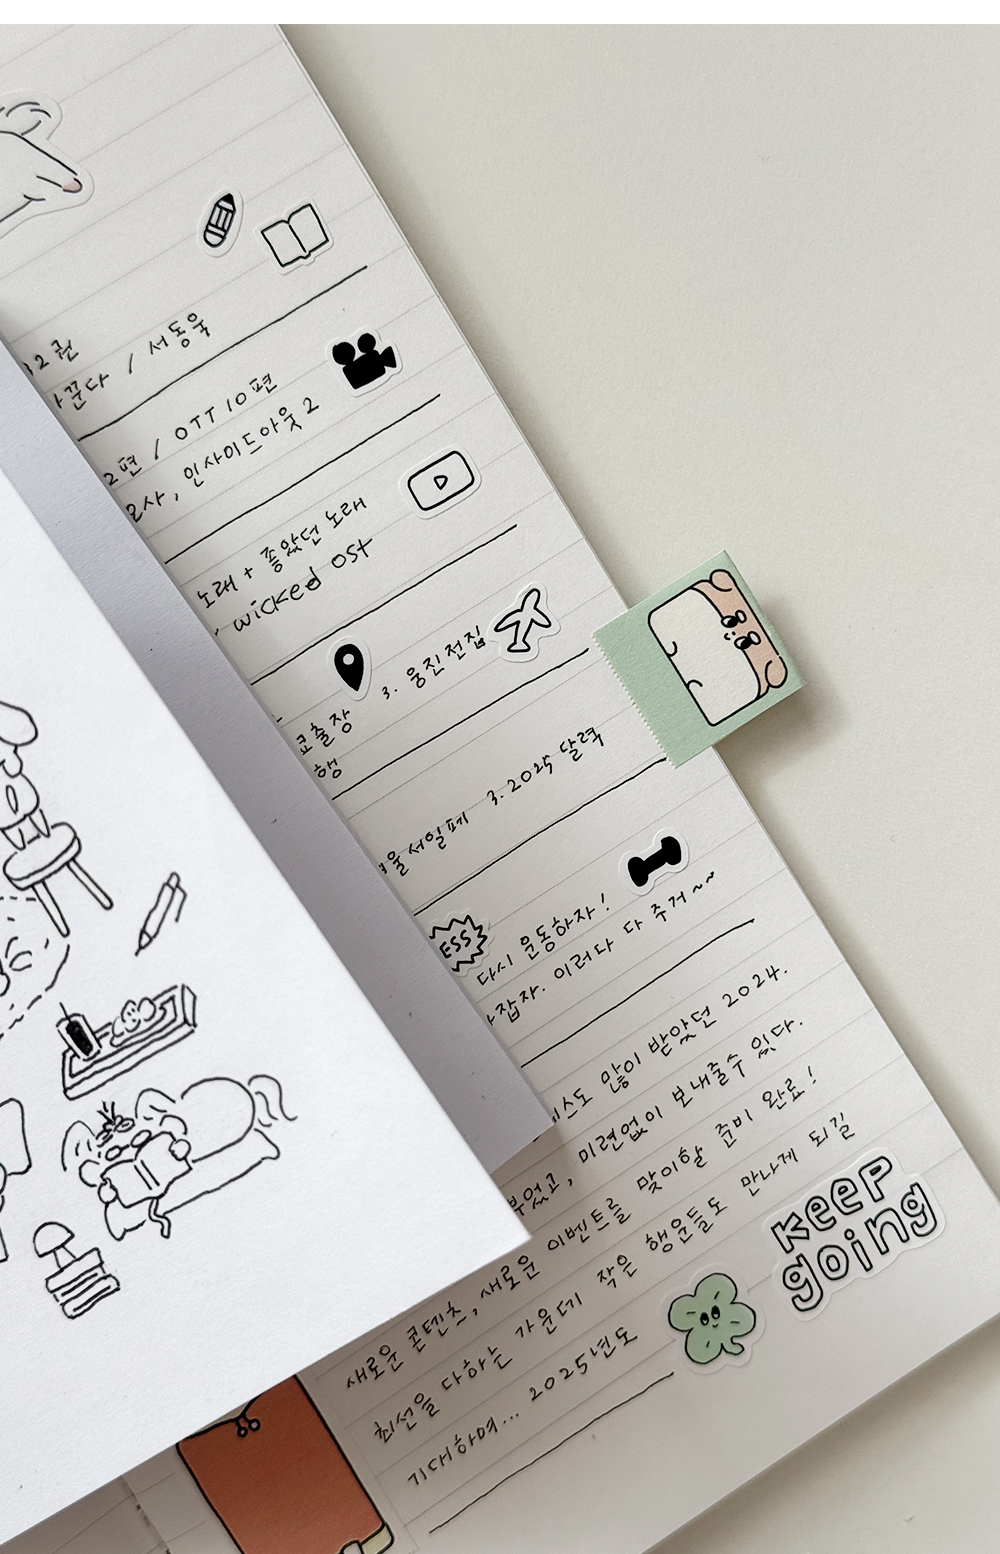 2권
꾼다 / 서동욱
2편 / OTT 10편
인사이드아웃 2
노래 + 좋았던 노래
wicked ost
3. 웅진전집
출장
행
서일페 3. 2025 달력
ESS
다시 운동하자!
잡자. 이러다 다 주거~~
많이 받았던 2024.
부었고, 미련없이 보내줄수 있다.
새로운 콘텐츠, 새로운 이벤트를 맞이할 준비 완료!
최선을 다하는 가운데 작은 행운들도 만나게 되길
기대하며... 2025년도
keep
going